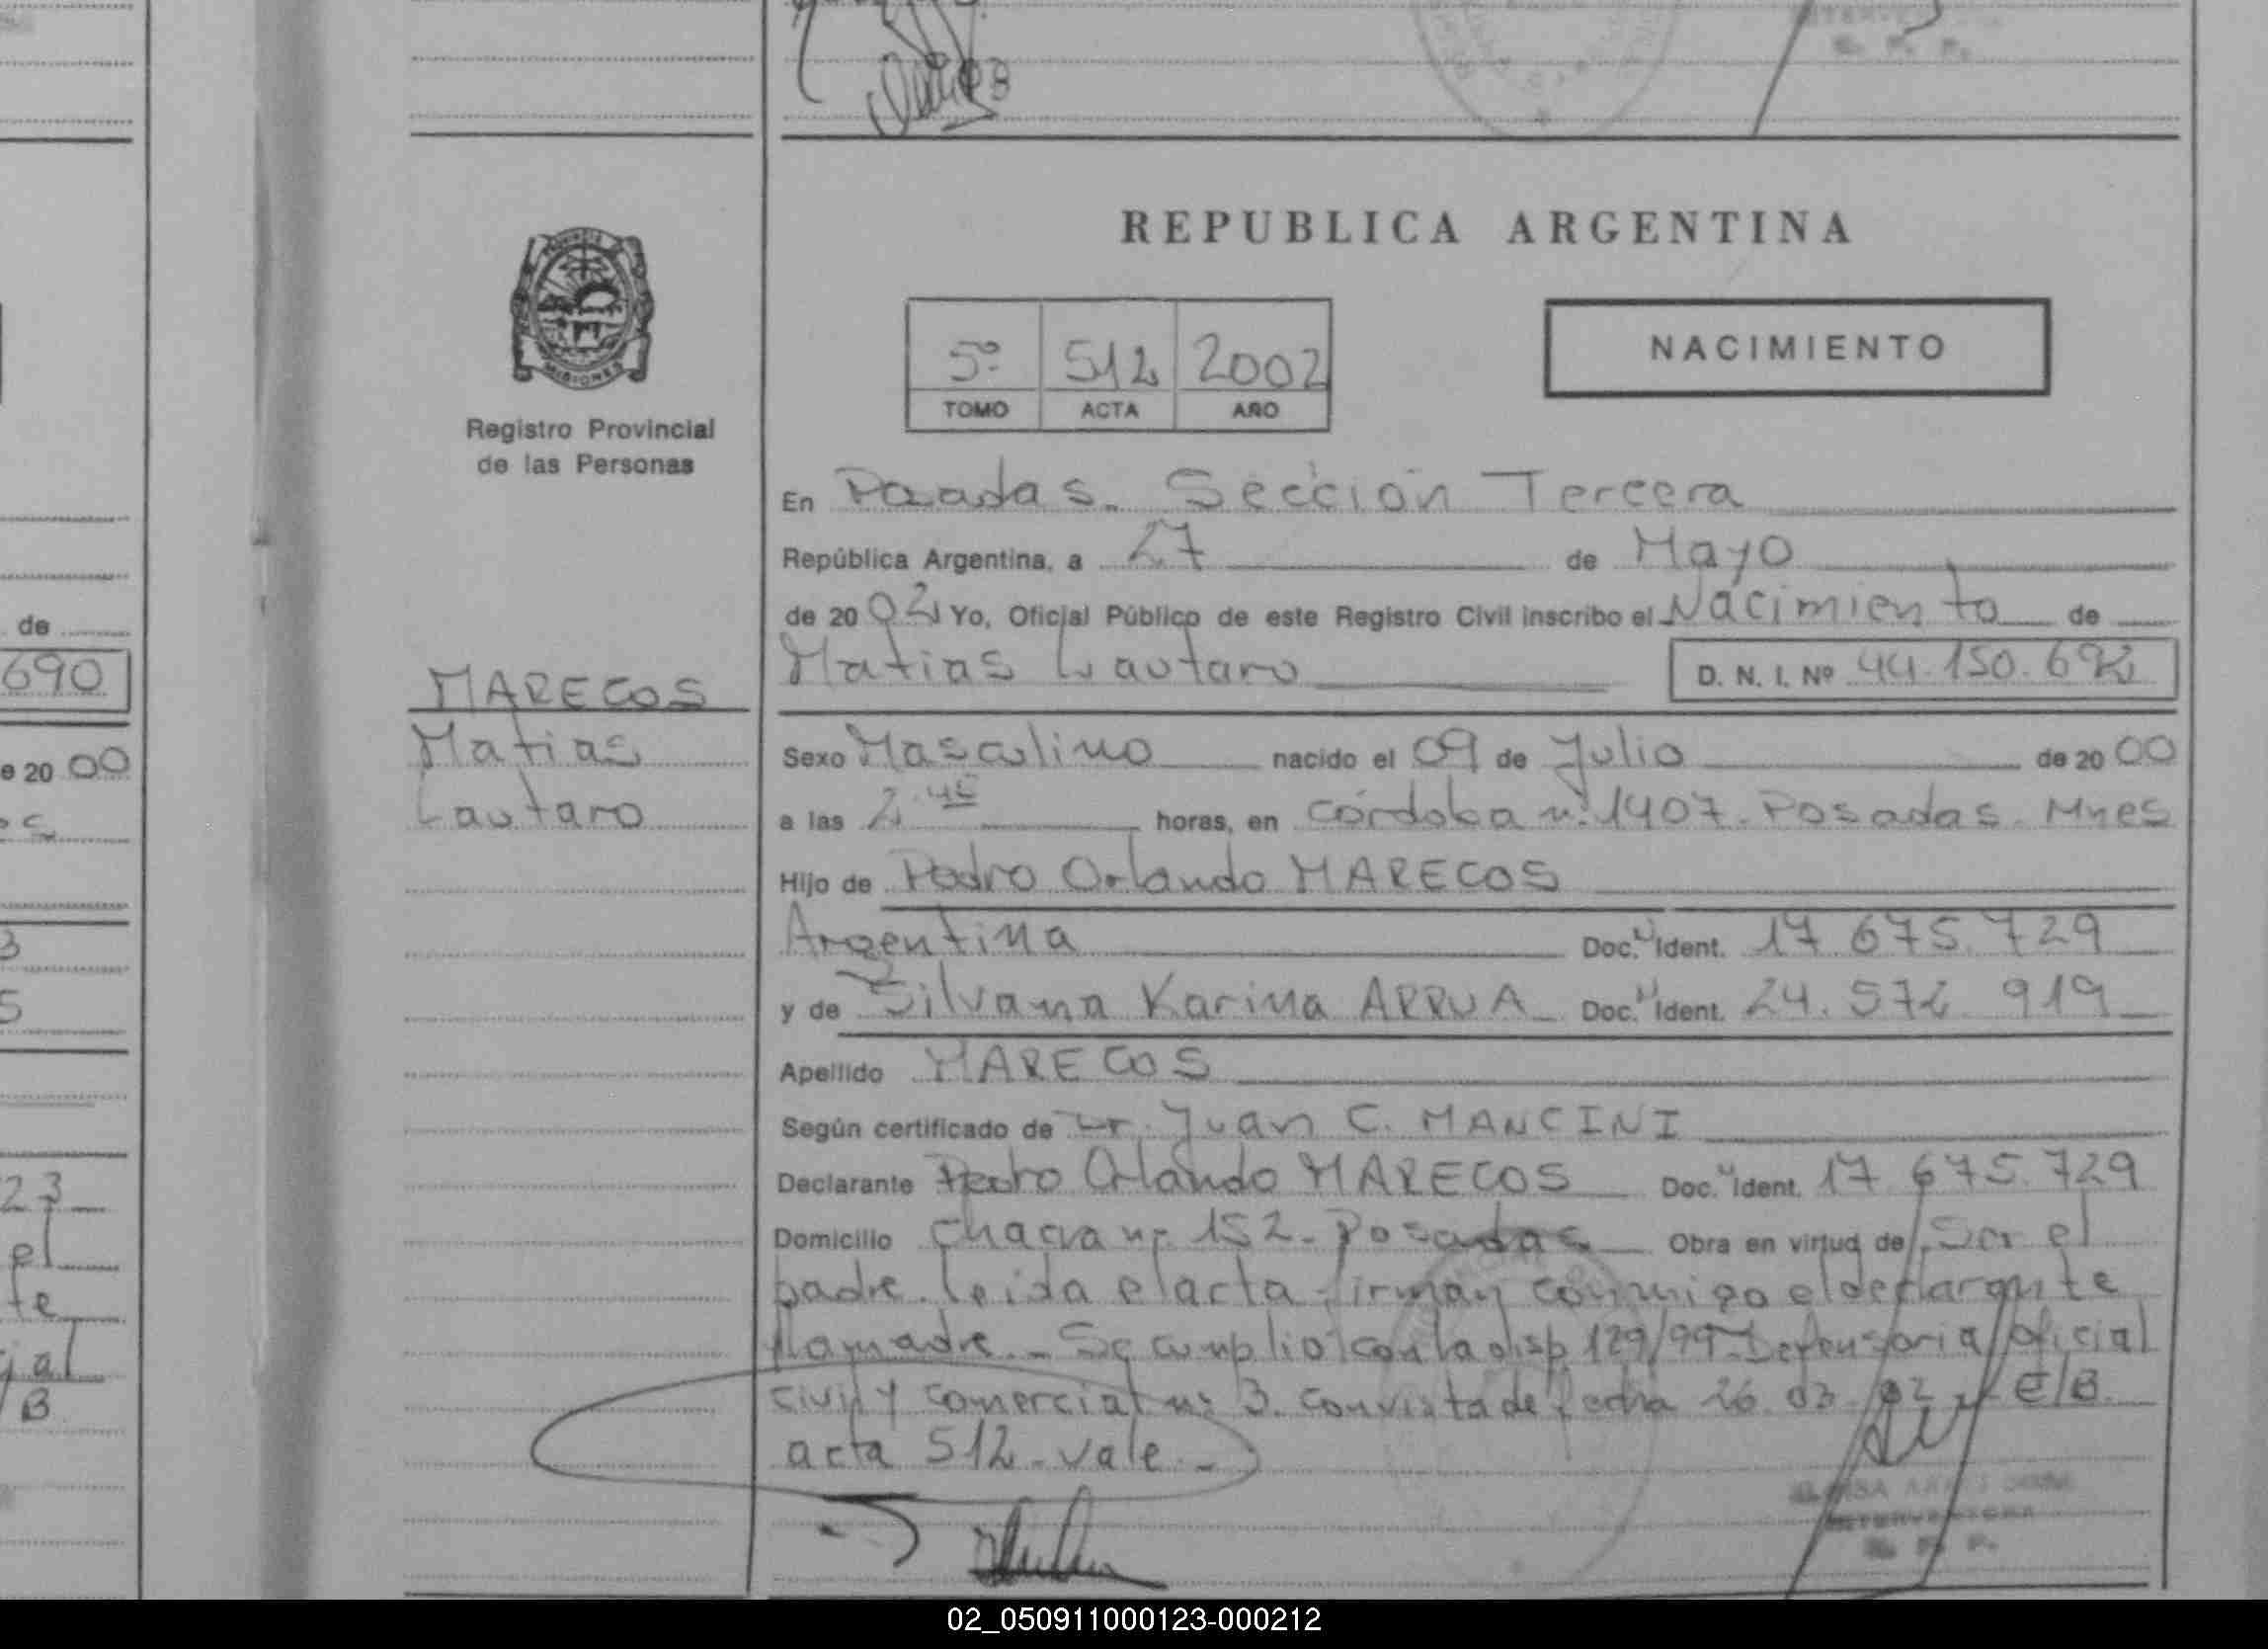 REPUBLICA ARGENTINA
5º 512 2002
TOMO ACTA AÑO
NACIMIENTO
PROVINCIA
MISIONES
Registro Provincial
de las Personas
MARECOS
Matias
Lautaro
En Posadas. Sección Tercera
República Argentina, a 27 de Mayo
de 2002 Yo, Oficial Público de este Registro Civil inscribo el Nacimiento de
Matias Lautaro D. N. I. Nº 44.150.692
Sexo Masculino nacido el 09 de Julio de 2000
a las 2.45 horas, en Córdoba nº 1407. Posadas. Mnes
Hijo de Pedro Orlando MARECOS
Argentina Doc. Ident. 17 675.729
y de Silvana Karina ARRUA Doc. Ident. 24.572 919
Apellido MARECOS
Según certificado de Dr. Juan C. MANCINI
Declarante Pedro Orlando MARECOS Doc. Ident. 17 675.729
Domicilio Chacra nº 152. Posadas Obra en virtud de Ser el
padre. leida el acta firman conmigo el declarante
y la madre. Se cumplio con la disp 129/99 Defensoria oficial
civil y comercial nº 3. con vista de fecha 26.03.02 E/B.
acta 512 - vale.-
INTERVENTORA
R. P. P.
de
690
e 20 00
3
5
23
el
te
ial
B
02_050911000123-000212